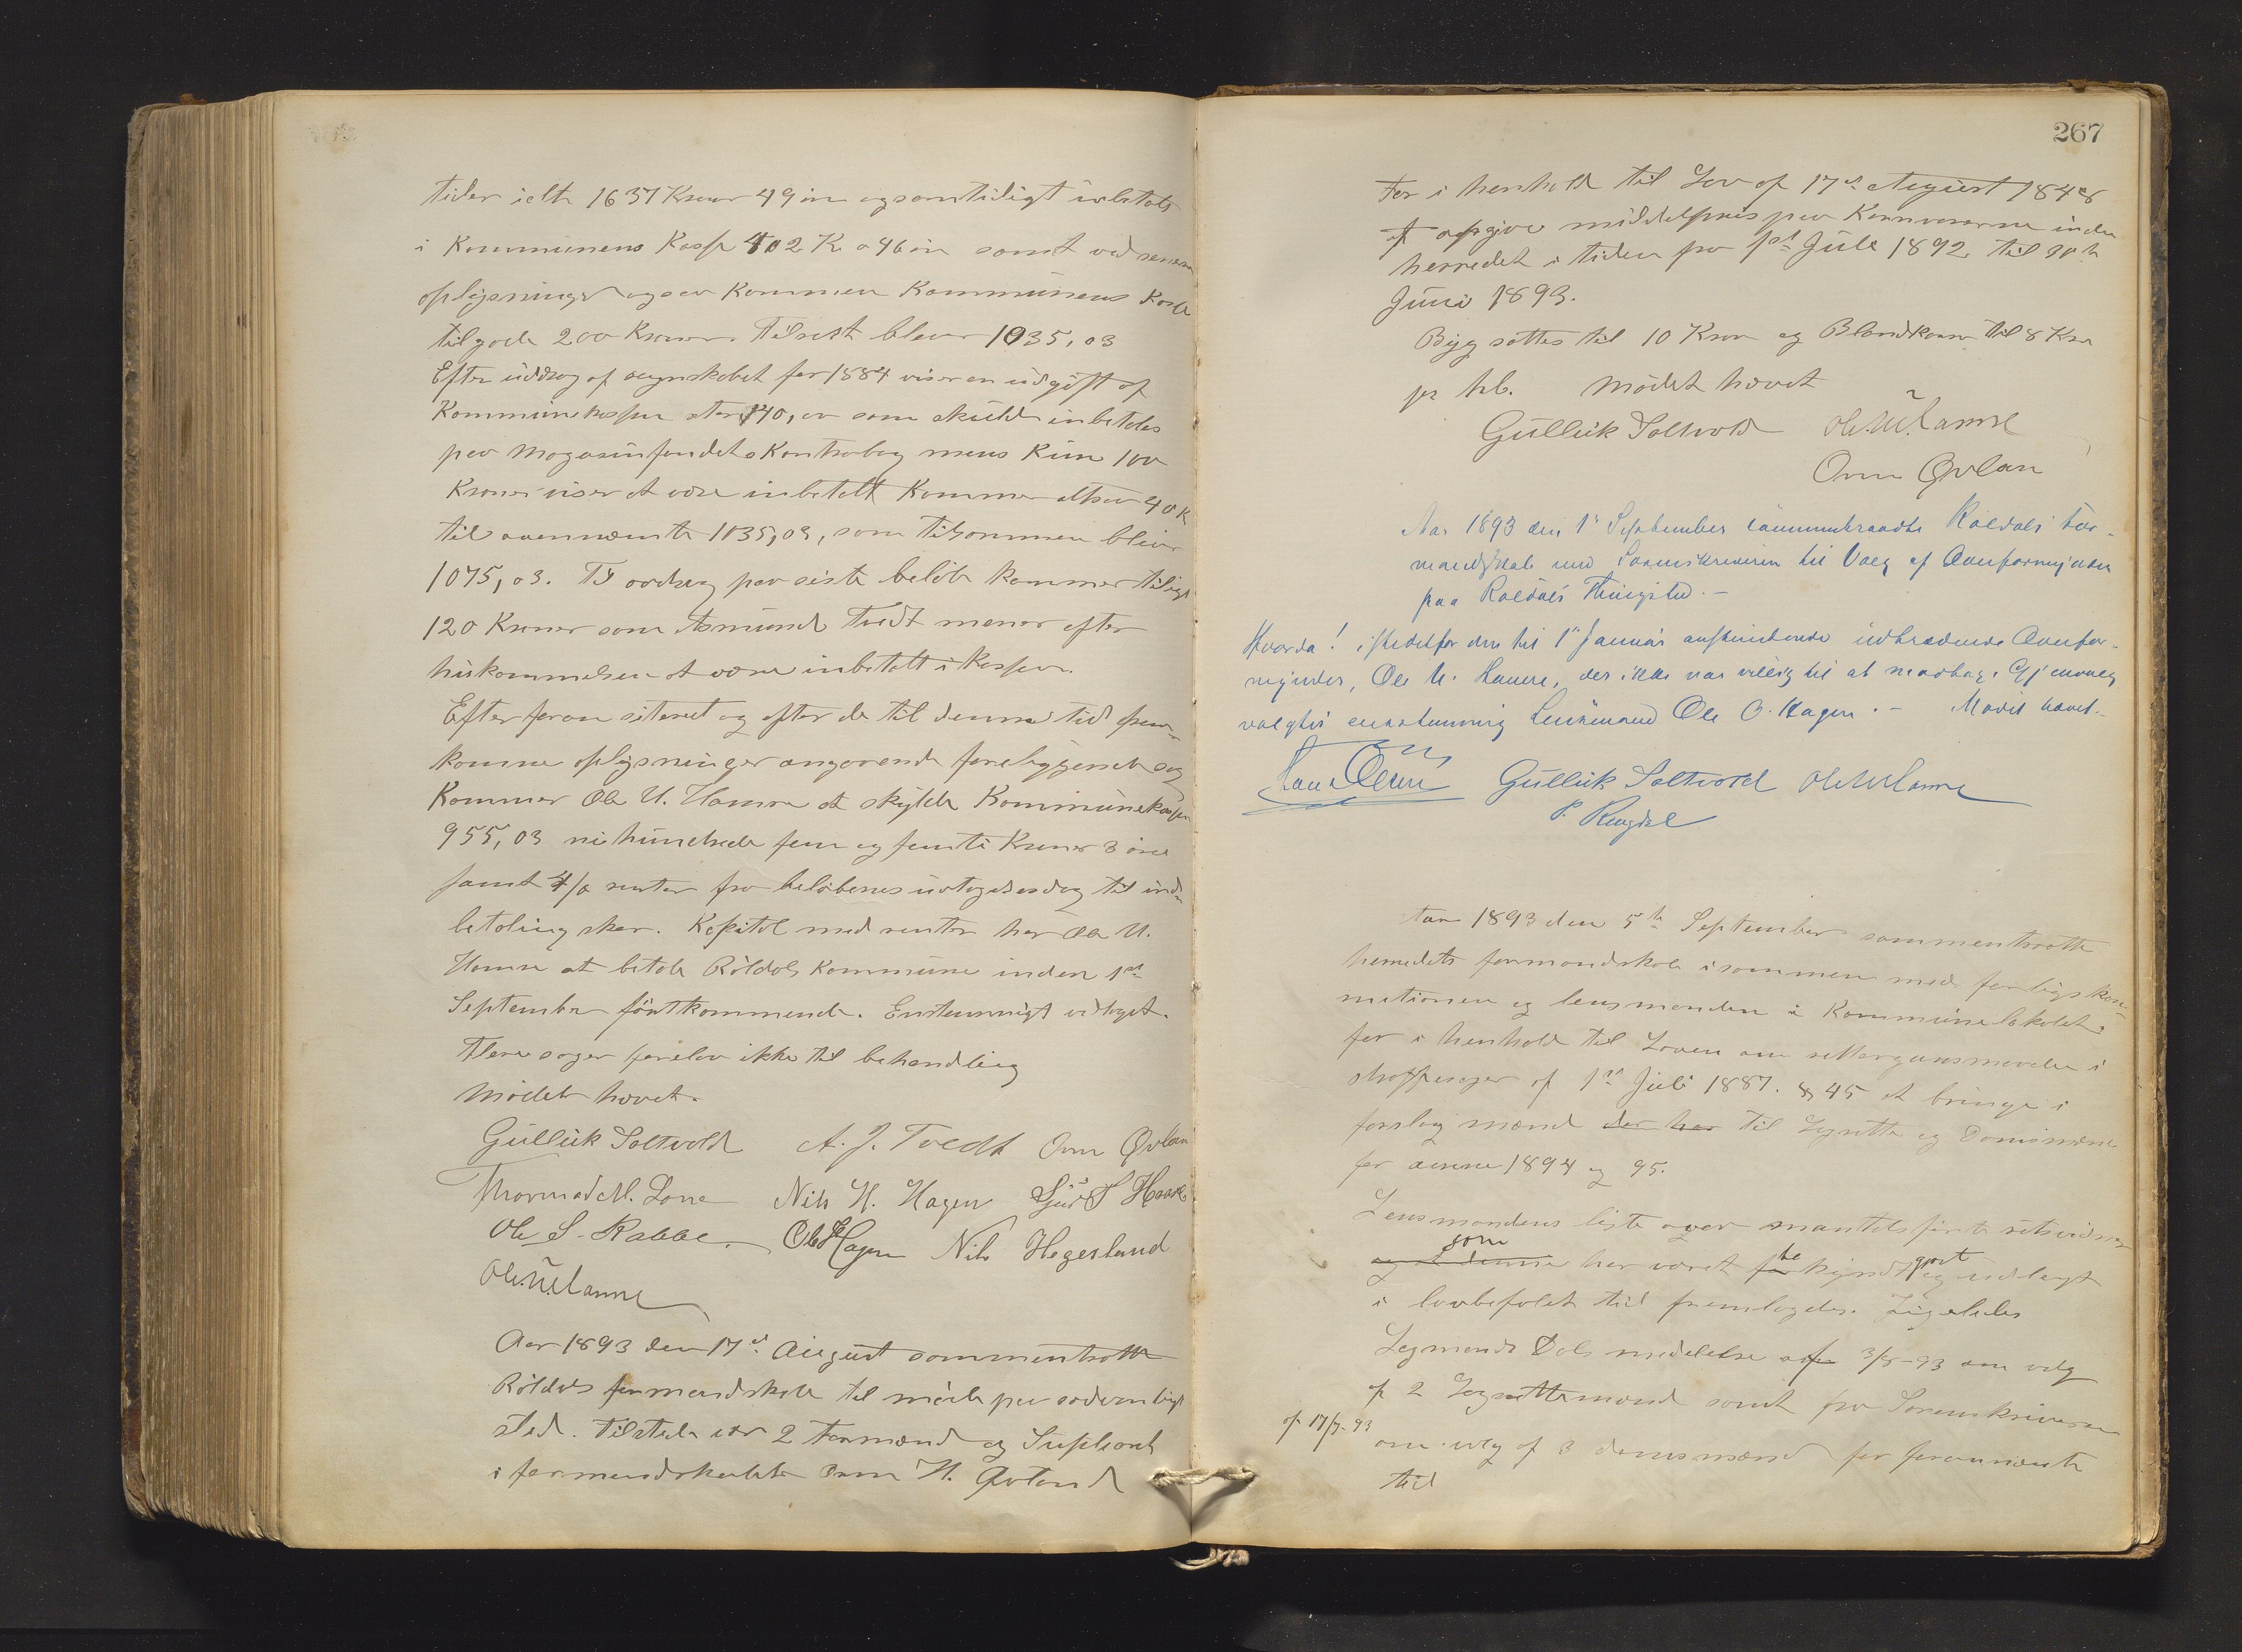 tider ialt 1637 Kroner 49 öre og samtidigt indbetalt
i Kommunens Kasse 402 Kr 46 öre samt ved senere
oplysninger ogsaa kommen Kommunens Kasse
tilgode 200 Kroner. Tilrest blev 1035,03
Efter uddrag af regnskabet for 1884 viser en udgift af
Kommunekassen stor 140,00 som skulde inbetales
paa Magasinfondets Kontrabog mens kun 100
Kroner viser at være inbetalt kommer altsaa 40 K
til ovennævnte 1035,03, som tilsammen bliver
1075,03. Til avdrag paa siste belöb kommer tiligt
120 Kroner som Asmund Tvedt mener efter
huskommelsen at være inbetalt i Kassen.
Efter foran siteret og efter de til denne tid frem-
komne oplysninger angaaende foreliggende sag
kommer Ole U. Hamre at skylde Kommunekassen
955,03 nihundrede fem og femti Kroner 3 öre
samt 4% renter fra belöbenes uttagelsesdag til ind-
betaling sker. Kapital med renter har Ole U.
Hamre at betale Röldals Kommune inden 1st
September förstkommende. Enstemmigt vedtaget.
Flere sager forelaa ikke til behandling
Mödet hævet.
Gulleik Saltvold A. J. Tvedt Orm Qvlan
Thormod M. Lone Nils H. Hagen Sjur S Haare
Ole S. Rabbe. Ole O Hagen Nils Hegerland
Ole U. Hamre
Aar 1893 den 17de August sammentraatte
Röldals formandskab til möde paa sædvanligt
sted. Tilstede var 2 Formænd og Supleant
i formandskabet Orm H. Qvland
267
For i henhold til Lov af 17de August 1848
at opgive middelpris paa Kornvarerne inden
herredet i tiden fra 1st Juli 1892 til 30te
Juni 1893.
Byg sattes til 10 Kroner og Blandkorn til 8 Kroner
pr hl. Mödet hævet
Gulleik Saltvold Ole U. Hamre
Orm Qvlan
Aar 1893 den 1ste September sammentraadte Røldals For-
mandskab med Sorenskriveren til Valg af Overformynder
paa Røldals Thingsted. -
Hvorda! istedetfor den til 1ste Januar anstundende udtrædende Overfor-
mynder, Ole U. Hamre, der ikke var villig til at modtage Gjenvalg
valgtes enstemmig Lensmand Ole O. Hagen. - Mødet hævet.
Gulleik Saltvold Ole U Hamre
Aar 1893 den 5te September sammentraatte
herredets formandskab isammen med forligskom-
mitionen og lensmanden i Kommunelokalet
for i henhold til Loven om rettergansmaaden i
straffesager af 1ste Juli 1887. § 45 at bringe i
forslag mænd der har til Lagrette og Domsmænd
for aarene 1894 og 95.
Lensmandens liste over mantalsförte retsvidner
og at denne som har været for be kyndt gort og udlagt
i lovbefalet tid fremlagdes. Ligeledes
Lagmands Dals medelelse af 3/8-93 om valg
af 2 Lagrettemænd samt fra Sorenskriveren
af 17/7-93 om valg af 3 domsmænd for forannævnte
tid